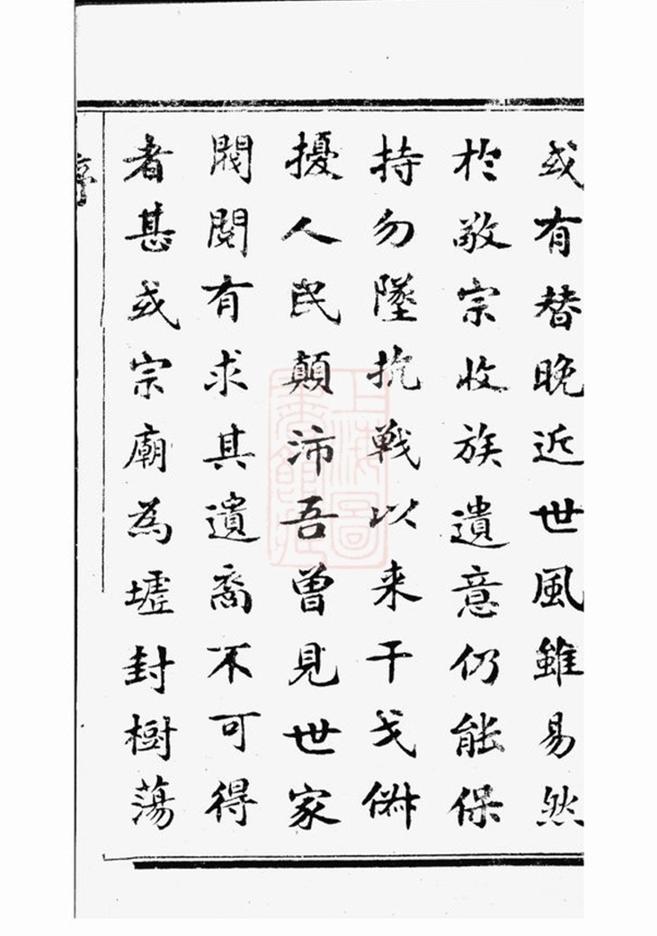 或有替晚近世風雖易然
於敬宗收族遺意仍能保
持勿墜抗戰以来干戈俶
擾人民顛沛吾曾見世家
閥閱有求其遺裔不可得
者甚或宗廟為墟封樹蕩
序
上海圖
書館藏